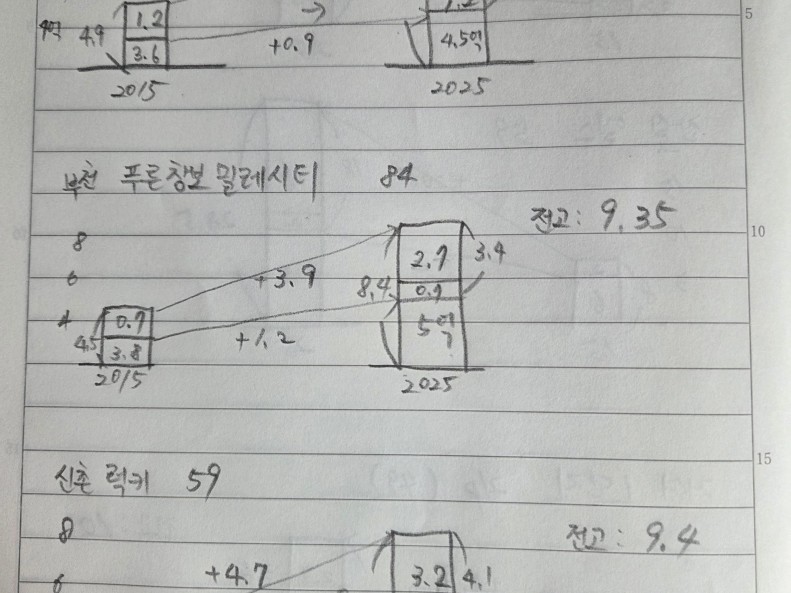 1.2
4억 4.9 3.6 +0.9 4.5억 5
2015 2025
부천 푸른창보 밀레시티 84
전고: 9.35
10
8
6 +3.9 2.7 3.4
8.4 0.7
4 0.7 5억
4.5 3.8 +1.2
2015 2025
15
신촌 럭키 59
8 전고: 9.4
6 +4.7 3.2 4.1